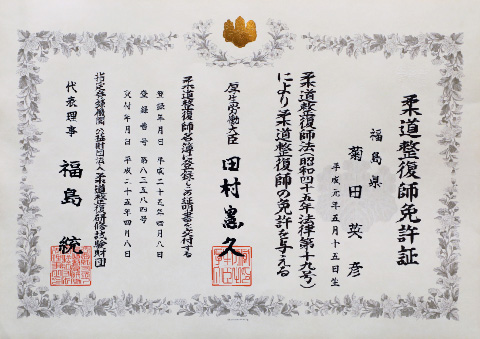 柔道整復師免許証
福島県
菊田英彦
平成元年五月十五日生
柔道整復師法(昭和四十五年法律第十九号)
により柔道整復師の免許を与える
厚生労働大臣 田村憲久
柔道整復師名簿に登録しこの証明書を交付する
登録年月日 平成二十五年四月八日
登録番号 第八三二五八四号
交付年月日 平成二十五年四月八日
指定登録機関 公益財団法人柔道整復研修試験財団
代表理事 福島 統